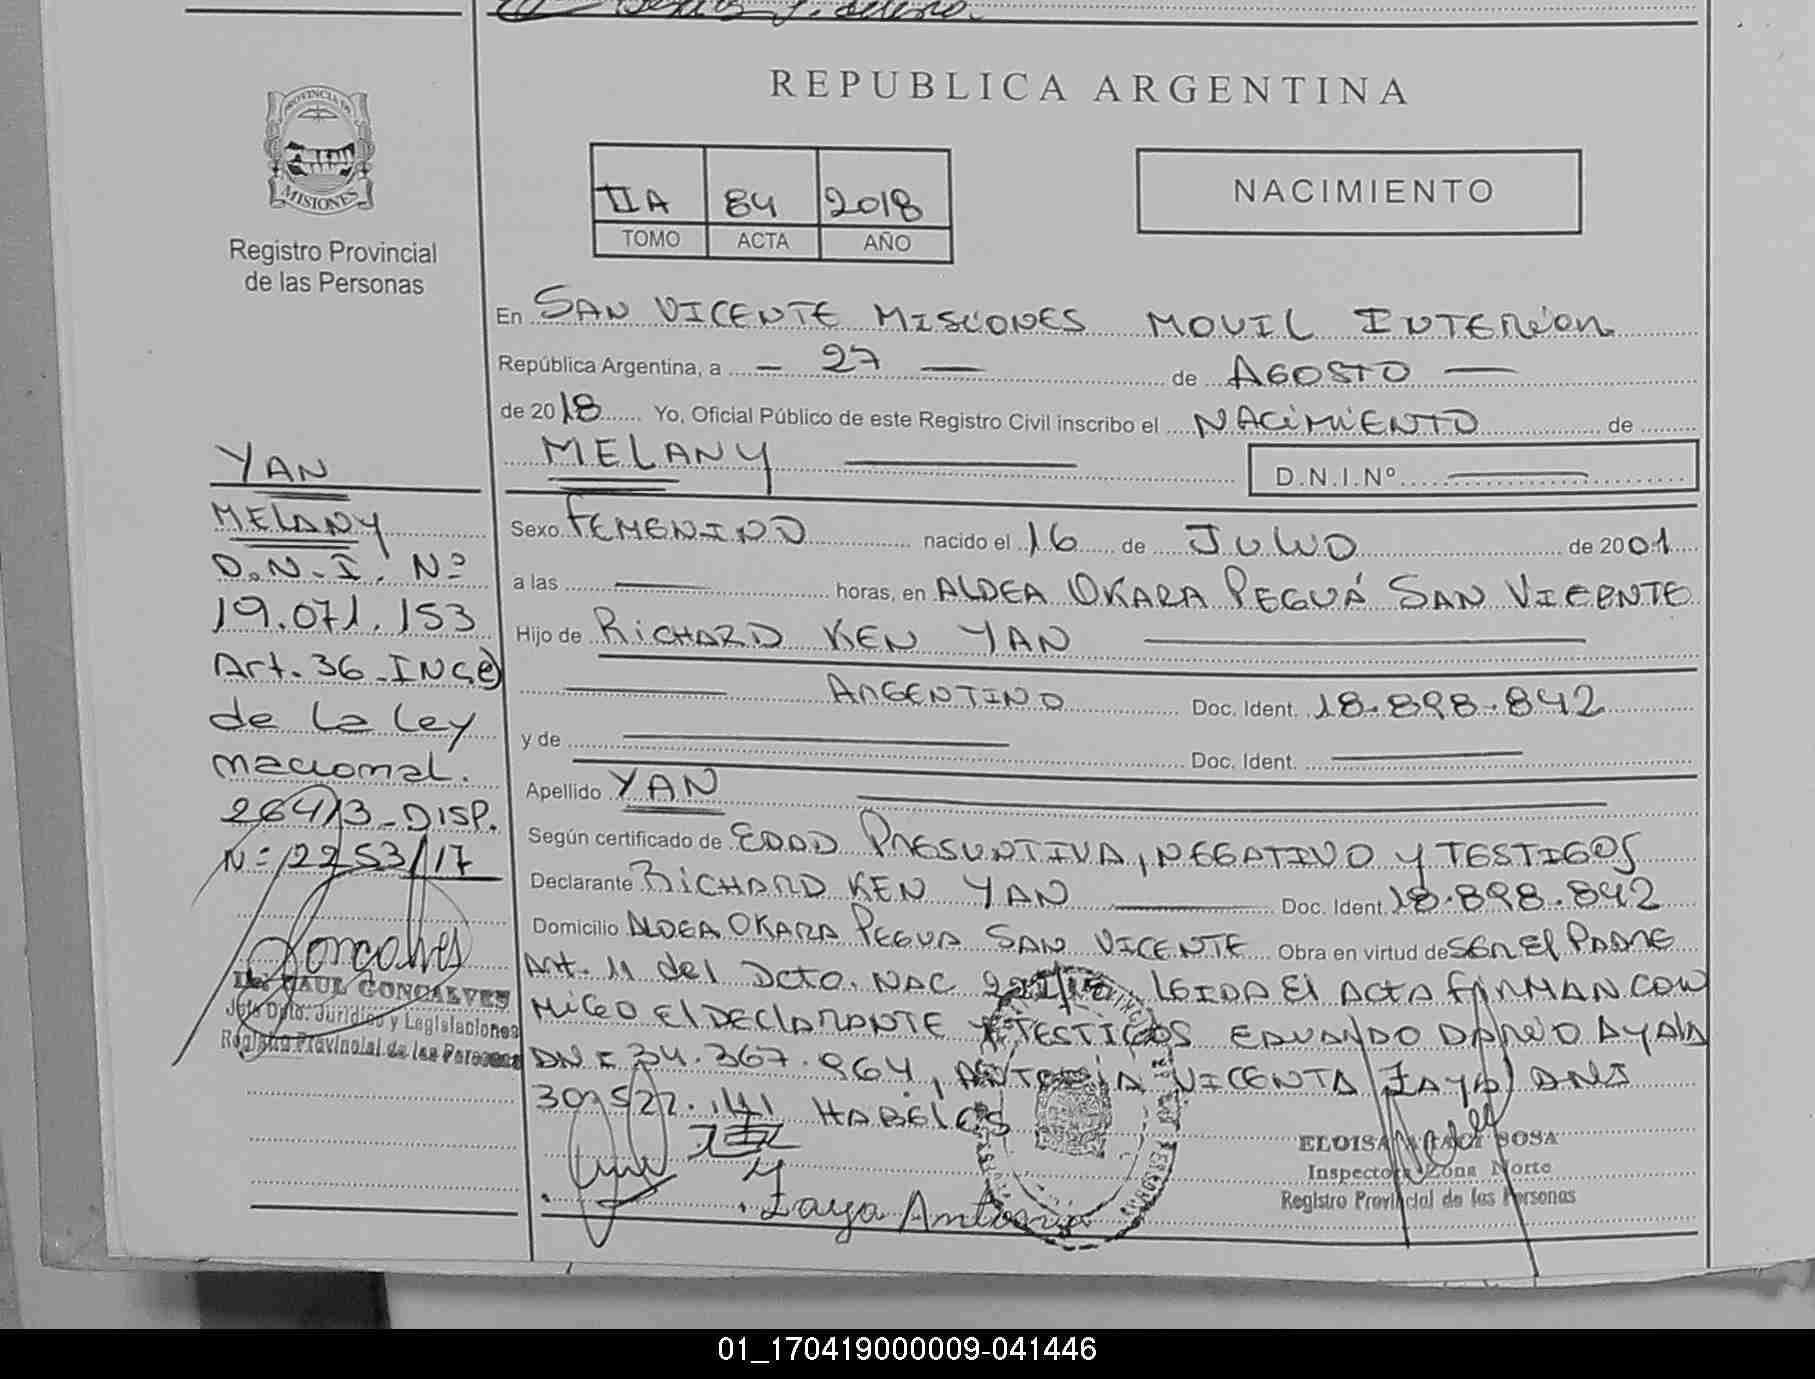 REPUBLICA ARGENTINA
PROVINCIA DE
MISIONES
Registro Provincial
de las Personas
IIA 84 2018
TOMO ACTA AÑO
NACIMIENTO
En SAN VICENTE MISIONES MOVIL INTERIOR
República Argentina, a - 27 — de AGOSTO —
de 2018 Yo, Oficial Público de este Registro Civil inscribo el NACIMIENTO de
MELANY D.N.I.Nº
Sexo FEMENINO nacido el 16 de JULIO de 2001
a las horas, en ALDEA OKARA PEGUÁ SAN VICENTE
Hijo de RICHARD KEN YAN
ARGENTINO Doc. Ident. 18.898.842
y de Doc. Ident.
Apellido YAN
Según certificado de EDAD PRESUNTIVA, NEGATIVO y TESTIGOS
Declarante RICHARD KEN YAN Doc. Ident. 18.898.842
Domicilio ALDEA OKARA PEGUA SAN VICENTE Obra en virtud de SER El PADRE
Art. 11 del Dcto. NAC LEIDA El ACTA FIRMAN CON
MIGO El DECLARANTE Y TESTIGOS EDUARDO DARIO AYALA
DNI 34.367.964, ANTONIA VICENTA ZAYA DNI
30.522.141 HABILES
Zaya Antonia
ELOISA SOSA
Inspectora Zona Norte
Registro Provincial de las Personas
YAN
MELANY
D.N.I. Nº
19.071.153
Art. 36 - INC e)
de la Ley
nacional.
26413 - DISP.
Nº 2253/17
Goncalves
Dr. RAUL GONCALVES
Jefe Dpto. Jurídico y Legislaciones
Registro Provincial de las Personas
01_170419000009-041446